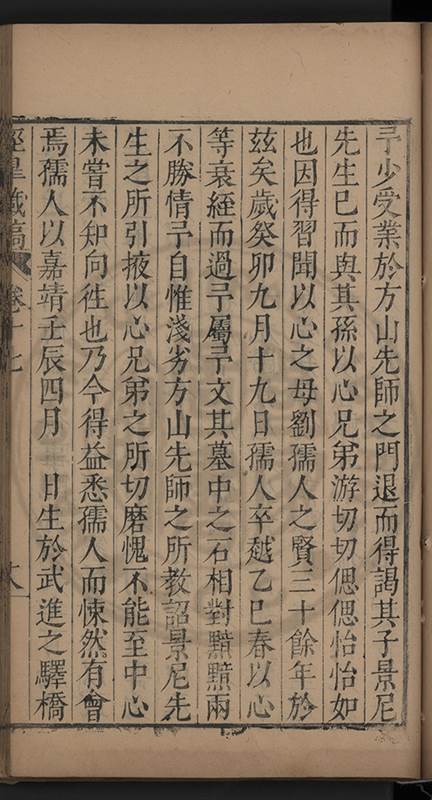 予少受業於方山先師之門退而得謁其子景尼
先生已而與其孫以心兄弟游切切偲偲怡怡如
也因得習聞以心之母劉孺人之賢三十餘年於
茲矣歲癸卯九月十九日孺人卒越乙巳春以心
等衰絰而過予屬予文其墓中之石相對黯黯兩
不勝情予自惟淺劣方山先師之所教詔景尼先
生之所引掖以心兄弟之所切磨愧不能至中心
未嘗不知向徃也乃今得益悉孺人而悚然有會
焉孺人以嘉靖壬辰四月 日生於武進之驛橋
涇臯藏稿 卷十七